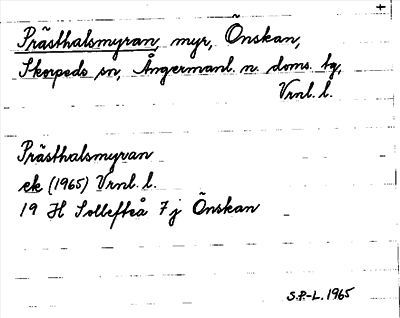 Prästhalsmyran, myr, Önskan,
Skorpeds sn, Ångermanl. n. doms. tg,
Vrnl. l.
Prästhalsmyran
ek (1965) Vrnl. l.
19 H Sollefteå 7j Önskan
S.P.-L. 1965